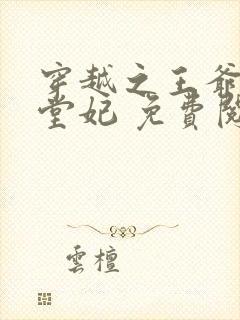 穿越之王爺
堂妃 免費閱
雲檀